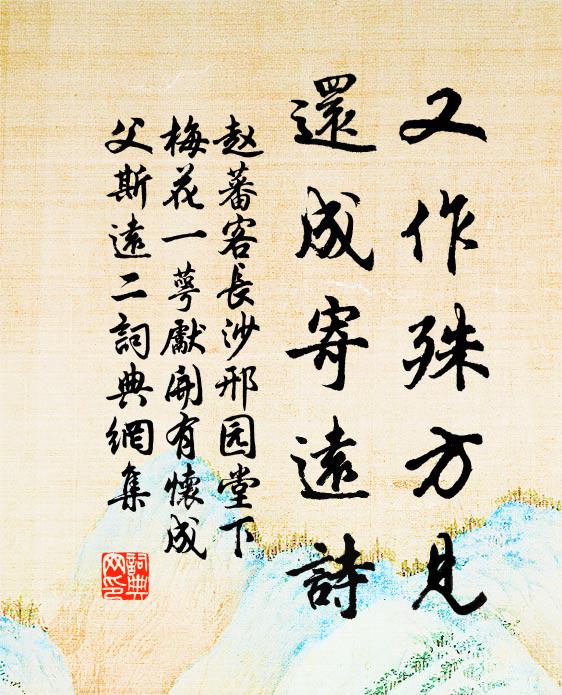 又作殊方見
還成寄遠詩
赵蕃客長沙邢园堂下
梅花一萼獻開有懷成
父斯遠二詞典網集
詞典